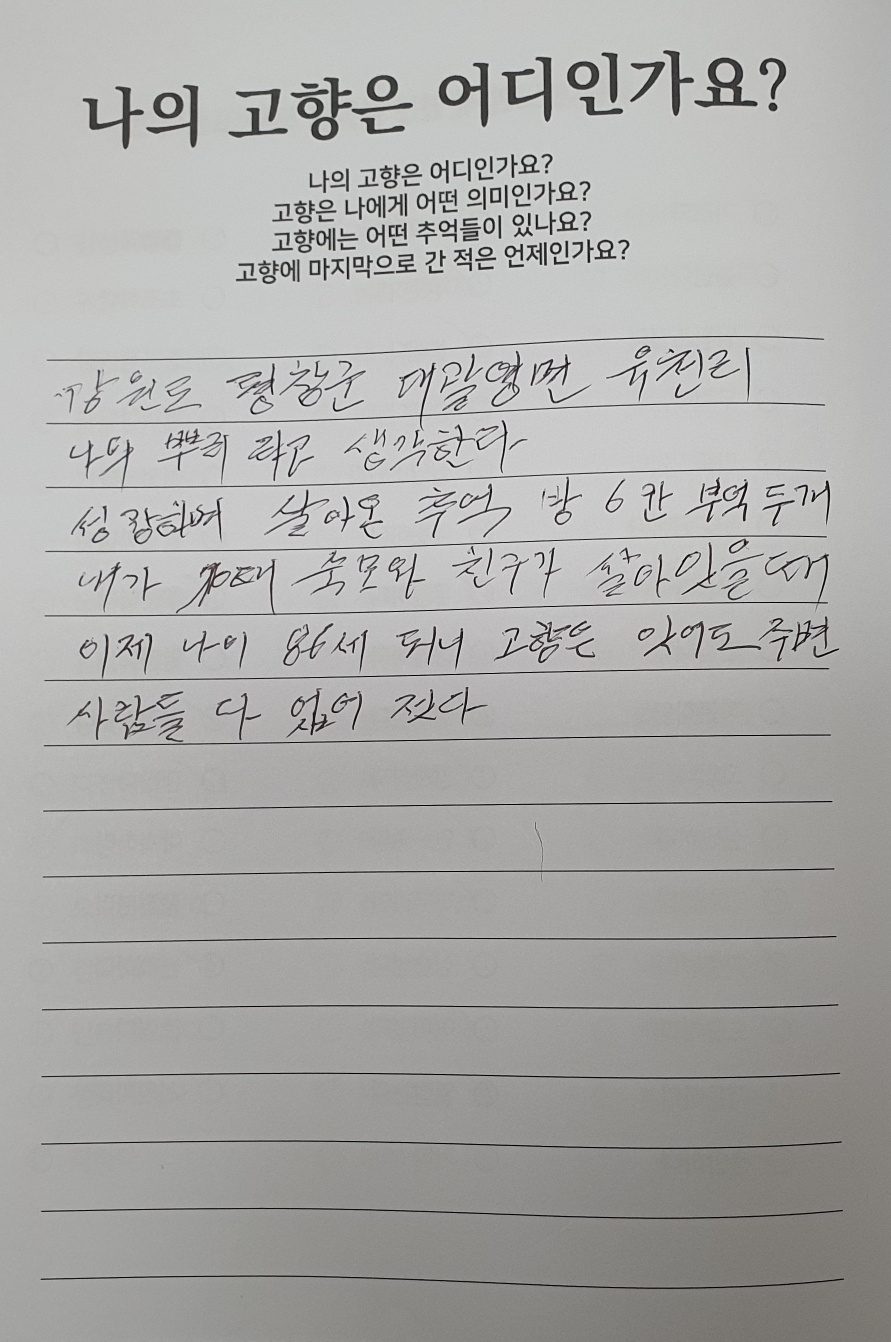 나의 고향은 어디인가요?
나의 고향은 어디인가요?
고향은 나에게 어떤 의미인가요?
고향에는 어떤 추억들이 있나요?
고향에 마지막으로 간 적은 언제인가요?
강원도 평창군 대괄영면 유천리
나의 뿌리 라고 생각한다
성장하며 살아온 추억 방 6칸 부엌 두개
내가 70대 숙모와 친구가 살아잇을때
이제 나이 86세 되니 고향은 잇어도 주변
사람들 다 없어 젓다